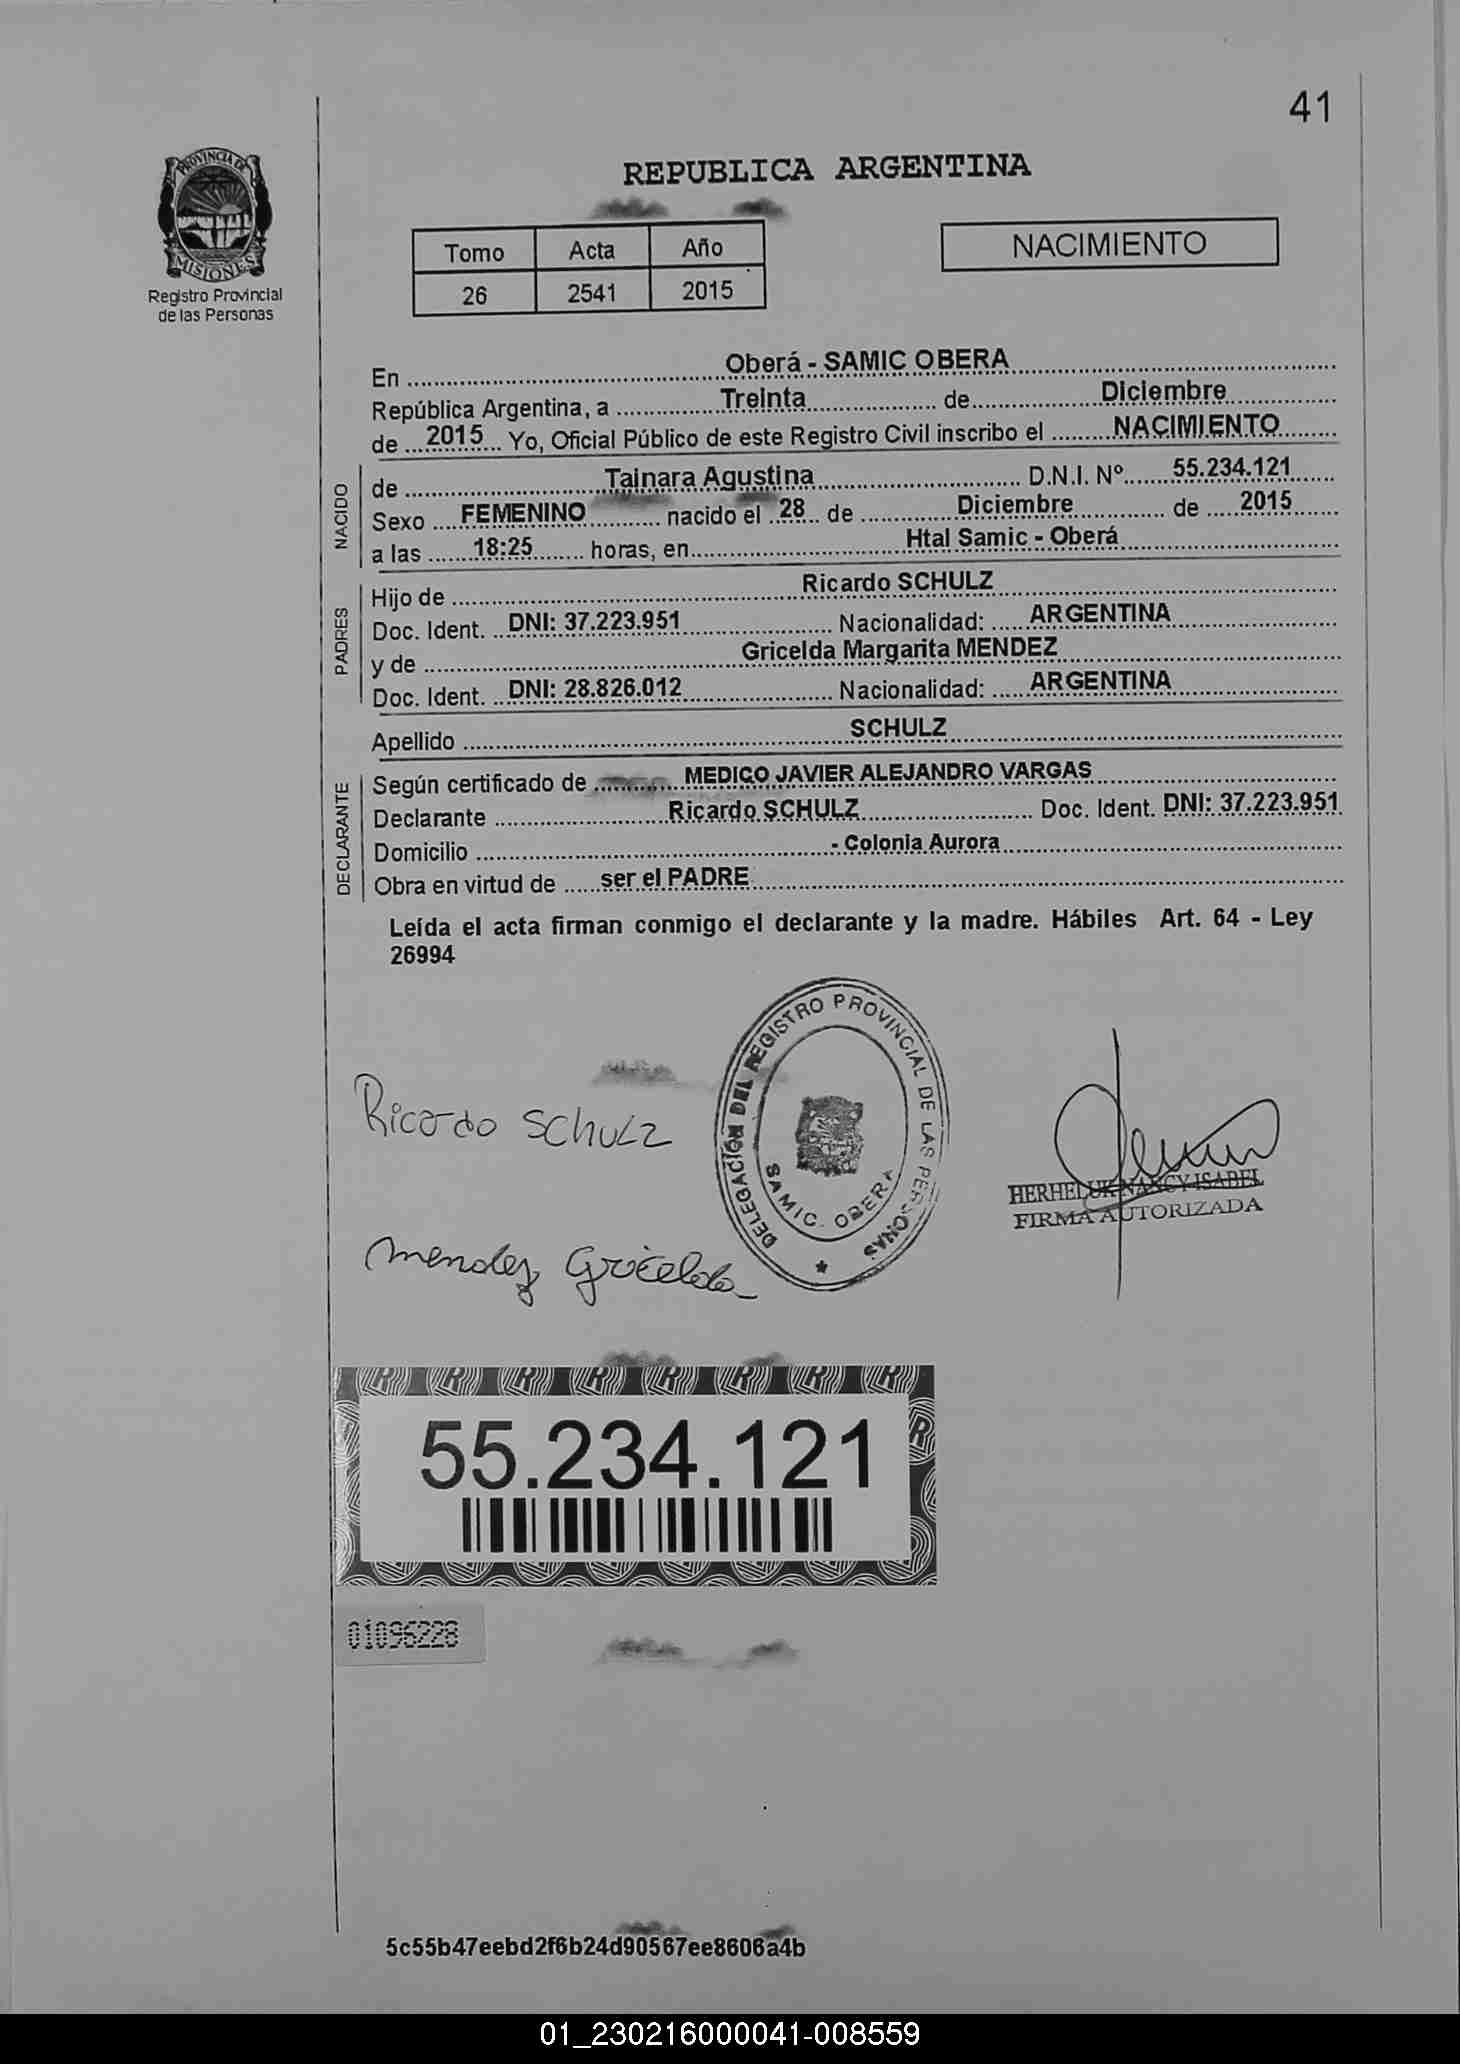 41
PROVINCIA DE
MISIONES
Registro Provincial
de las Personas
REPUBLICA ARGENTINA
Tomo Acta Año
26 2541 2015
NACIMIENTO
En Oberá - SAMIC OBERA
República Argentina, a Treinta de Diciembre
de 2015 Yo, Oficial Público de este Registro Civil inscribo el NACIMIENTO
NACIDO
de Tainara Agustina D.N.I. Nº 55.234.121
Sexo FEMENINO nacido el 28 de Diciembre de 2015
a las 18:25 horas, en Htal Samic - Oberá
PADRES
Hijo de Ricardo SCHULZ
Doc. Ident. DNI: 37.223.951 Nacionalidad: ARGENTINA
y de Gricelda Margarita MENDEZ
Doc. Ident. DNI: 28.826.012 Nacionalidad: ARGENTINA
Apellido SCHULZ
DECLARANTE
Según certificado de MEDICO JAVIER ALEJANDRO VARGAS
Declarante Ricardo SCHULZ Doc. Ident. DNI: 37.223.951
Domicilio - Colonia Aurora
Obra en virtud de ser el PADRE
Leída el acta firman conmigo el declarante y la madre. Hábiles Art. 64 - Ley
26994
DELEGACIÓN DEL REGISTRO PROVINCIAL DE LAS PERSONAS
SAMIC. OBERA
Ricardo Schulz
Mendez Gricelda
HERHELUK NANCY ISABEL
FIRMA AUTORIZADA
55.234.121
01096228
5c55b47eebd2f6b24d90567ee8606a4b
01_230216000041-008559